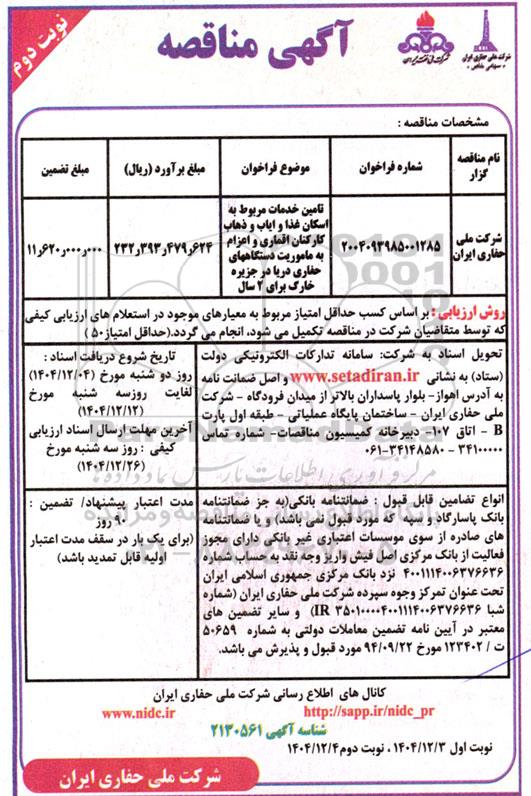 نوبت دوم
آگهی مناقصه
شرکت ملی نفت ایران
شرکت ملی حفاری ایران
« سهامی خاص »
مشخصات مناقصه :
نام مناقصه گزار
شماره فراخوان
موضوع فراخوان
مبلغ برآورد (ریال)
مبلغ تضمین
شرکت ملی
حفاری ایران
۲۰۰۴۰۹۳۹۸۵۰۰۱۲۸۵
تامین خدمات مربوط به
اسکان غذا و ایاب و ذهاب
کارکنان اقماری و اعزام
به ماموریت دستگاههای
حفاری دریا در جزیره
خارک برای ۲ سال
۲۳۲٫۳۹۳٫۴۷۹٫۶۲۴
۱۱٫۶۲۰٫۰۰۰٫۰۰۰
روش ارزیابی : بر اساس کسب حداقل امتیاز مربوط به معیارهای موجود در استعلام های ارزیابی کیفی
که توسط متقاضیان شرکت در مناقصه تکمیل می شود، انجام می گردد.(حداقل امتیاز ۵۰ )
تحویل اسناد به شرکت: سامانه تدارکات الکترونیکی دولت
(ستاد) به نشانی www.setadiran.ir و اصل ضمانت نامه
به آدرس اهواز- بلوار پاسداران بالاتر از میدان فرودگاه - شرکت
ملی حفاری ایران - ساختمان پایگاه عملیاتی - طبقه اول پارت
B - اتاق ۱۰۷- دبیرخانه کمیسیون مناقصات- شماره تماس
۳۴۱۰۰۰۰۰ - ۰۶۱-۳۴۱۴۸۵۸۰
تاریخ شروع دریافت اسناد :
روز دو شنبه مورخ (۱۴۰۴/۱۲/۰۴)
لغایت روزسه شنبه مورخ
(۱۴۰۴/۱۲/۱۲)
آخرین مهلت ارسال اسناد ارزیابی
کیفی : روز سه شنبه مورخ
(۱۴۰۴/۱۲/۲۶)
انواع تضامین قابل قبول : ضمانتنامه بانکی(به جز ضمانتنامه
بانک پاسارگاد و سپه که مورد قبول نمی باشد) و یا ضمانتنامه
های صادره از سوی موسسات اعتباری غیر بانکی دارای مجوز
فعالیت از بانک مرکزی اصل فیش واریز وجه نقد به حساب شماره
۴۰۰۱۱۱۴۰۰۶۳۷۶۶۳۶ نزد بانک مرکزی جمهوری اسلامی ایران
تحت عنوان تمرکز وجوه سپرده شرکت ملی حفاری ایران (شماره
شبا IR ۳۵۰۱۰۰۰۰۴۰۰۱۱۱۴۰۰۶۳۷۶۶۳۶) و سایر تضمین های
معتبر در آیین نامه تضمین معاملات دولتی به شماره ۵۰۶۵۹
ت / ۱۲۳۴۰۲ مورخ ۹۴/۰۹/۲۲ مورد قبول و پذیرش می باشد.
مدت اعتبار پیشنهاد/ تضمین :
۹۰ روز
(برای یک بار در سقف مدت اعتبار
اولیه قابل تمدید باشد)
کانال های اطلاع رسانی شرکت ملی حفاری ایران
http://sapp.ir/nidc_pr
www.nidc.ir
شناسه آگهی ۲۱۳۰۵۶۱
نوبت اول ۱۴۰۴/۱۲/۳ ، نوبت دوم ۱۴۰۴/۱۲/۴
شرکت ملی حفاری ایران